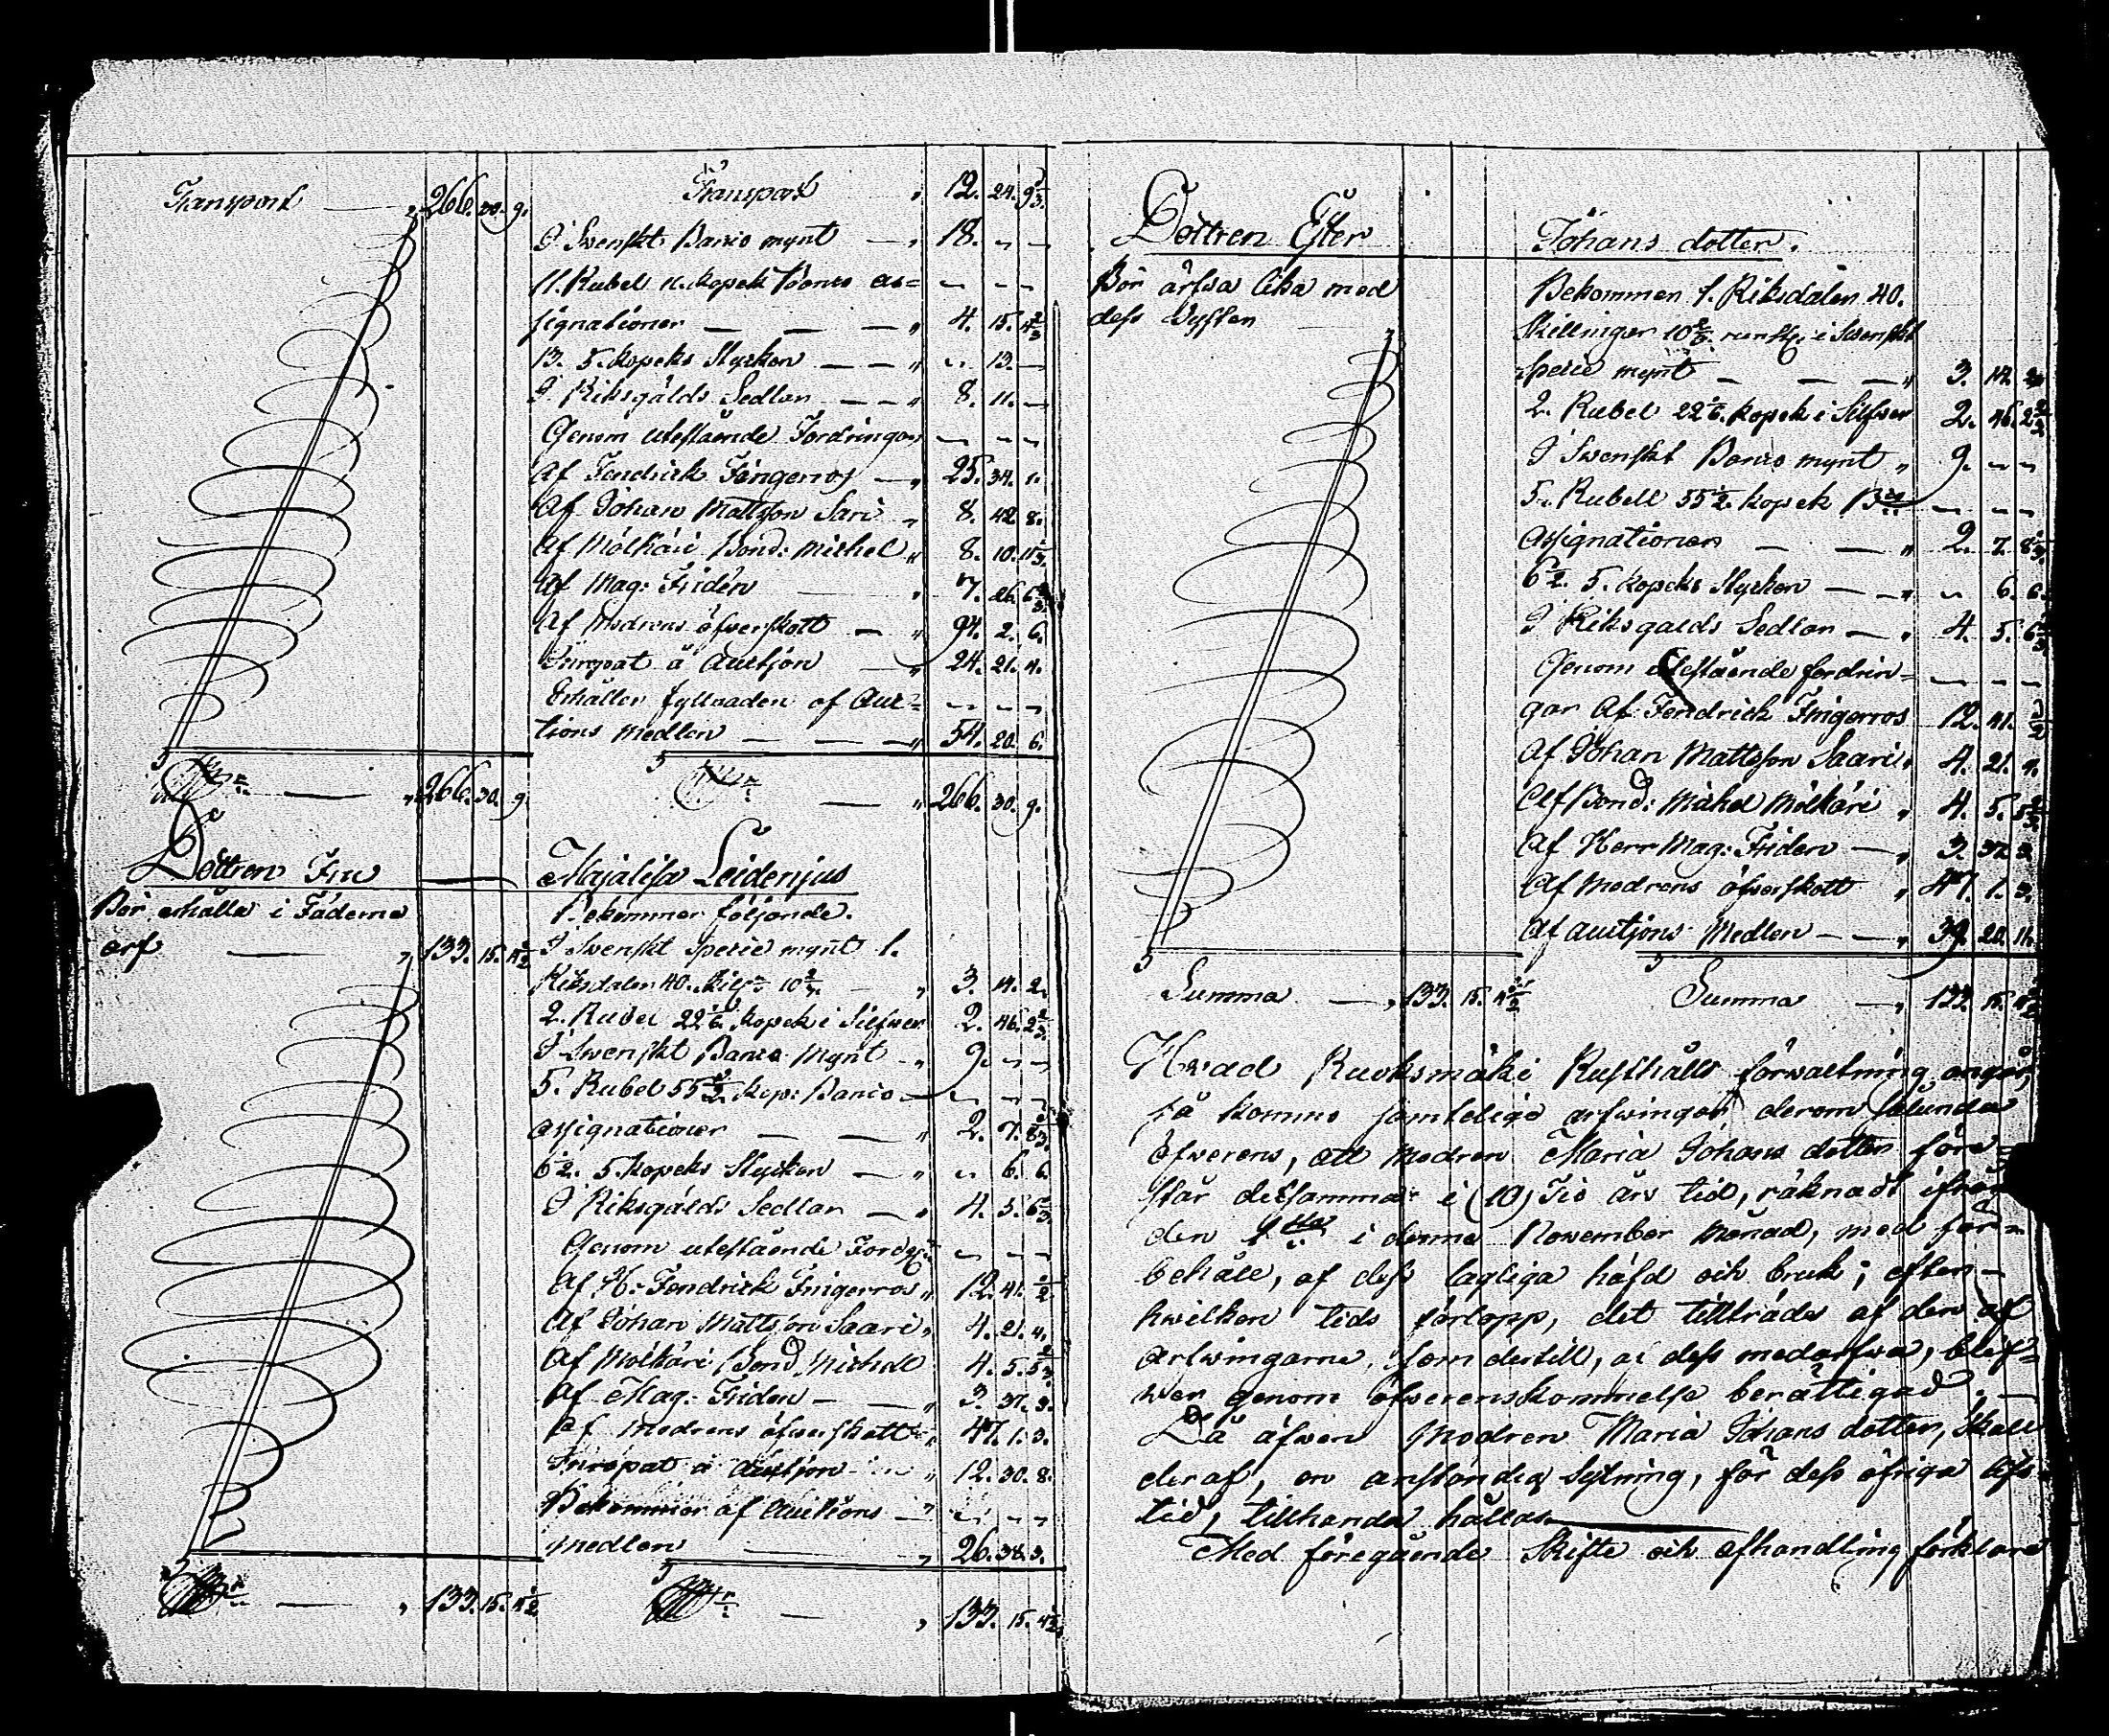 Transport — 266. 30. 9.
Transport 12. 24. 9 1/3.
I Swenskt Banco mynt — 18. — —
11. Rubel 11. kopek Banco as= — — —
signationer — — — 4. 15. 4 2/3
13. 5. kopeks Stycken — — „ 13. —
I Riksgälds Sedlar — — 8. 11. —
Genom utestående Fordringar — — —
Af Fendrick Fingerroos — 25. 34. 1.
Af Johan Mattsson Sari „ 8. 42. 8.
Af Mölkäri Bond: Michel „ 8. 10. 11 1/3.
Af Mag: Fridén 7. 26. 6 2/3.
Af Modrens öfwerskott — 94. 2. 6.
Inropat å Auctjon 24. 21. 4.
Erhåller fyllnaden af Auc= — — —
tions Medlen — — — 54. 20. 6.
— „ 266. 30. 9.
— „ 266. 30. 9.
Dottren Fru — Majalisa Leidenjus
Bör erhålla i Fäderne
arf — 133. 15. 4 1/2
Bekommer följande.
I Swenskt Specie mynt 1.
Riksdaler 40. skil: 10 2/3. — 3. 14. 2.
2. Rubel 22 1/6. kopek i Silfwer 2. 46. 2 2/3
I Swenskt Banco Mynt — 9. — —
5. Rubel 55 1/2. kop: Banco — — — —
assignationer — — „ 2. 7. 8 1/3
6 1/2. 5. kopeks Stycken — „ 6. 6.
I Riksgälds Sedlar — „ 4. 5. 6 2/3.
Genom utestående Fordr: — — —
Af H: Fendrick Fingerroos „ 12. 41. 1/2
Af Johan Mattsson Saari „ 4. 21. 4.
Af Mölkäri Bond Michell 4. 5. 5 2/3.
Af Mag: Friden — — 3. 37. 3.
Af Modrens öfwerskott „ 47. 1. 3.
Inropat å Auctjon „ 12. 30. 8.
Bekommer af Auctions — — — —
medlen 26. 38. 3.
— , 133. 15. 4 1/2
— , 133. 15. 4 1/2
Dottren Ester Johans dotter.
Bör ärfwa lika med
dess Systen
Bekommen 1. Riksdaler 40.
Skillingar 10 2/3. runst: i Swenskt
specie mynt — — — „ 3. 14. 2
2. Rubel 22 1/6. kopek i Silfwer 2. 46. 2 2/3
I Swenskt Banco mynt „ 9. — —
5. Rubell 55 1/2. kopek Bco — — —
assignationer — — „ 2. 7. 8 1/3.
6 1/2. 5. kopeks Stycken — — „ 6. 6.
I Riksgälds Sedlar — „ 4. 5. 6 2/3
Genom utestående fordrin= — — —
gar Af Fendrick Fingerros 12. 41. 1/2
Af Johan Mattsson Saari „ 4. 21. 4.
Af Bond: Michel Mölkäri „ 4. 5. 5 2/3.
Af Herr Mag: Friden — „ 3. 37. 3
Af Modrens öfwerskott „ 47. 1. 3.
Af auctjons Medlen — — „ 39. 20. 11.
Summa — , 133. 15. 4 1/2
Summa — , 133. 15. 4 1/2
Hwad Ruoksmäki Rusthålls förwaltning angår,
så komma samtelige arfwingar derom sålunda
öfwerens, att Modren Maria Johans dotter före=
står detsamma i (10) Tio års tid, räknadt ifrån
den 1sta i denna November Månad, med för=
behåll, af dess lagliga häfd och bruk; efter=
hwilken tids förlopp, det tillträdes af den af
arfwingarne, som dertill, af dess medarfwa, blif=
wer genom öfwerenskommelse berättigad. —
Då äfwen Modren Maria Johans dotter, skall
deraf, en anständig sytning, för dess öfriga lifs=
tid, tillhanda hållas —
Med föregående Skifte och afhandling förklara